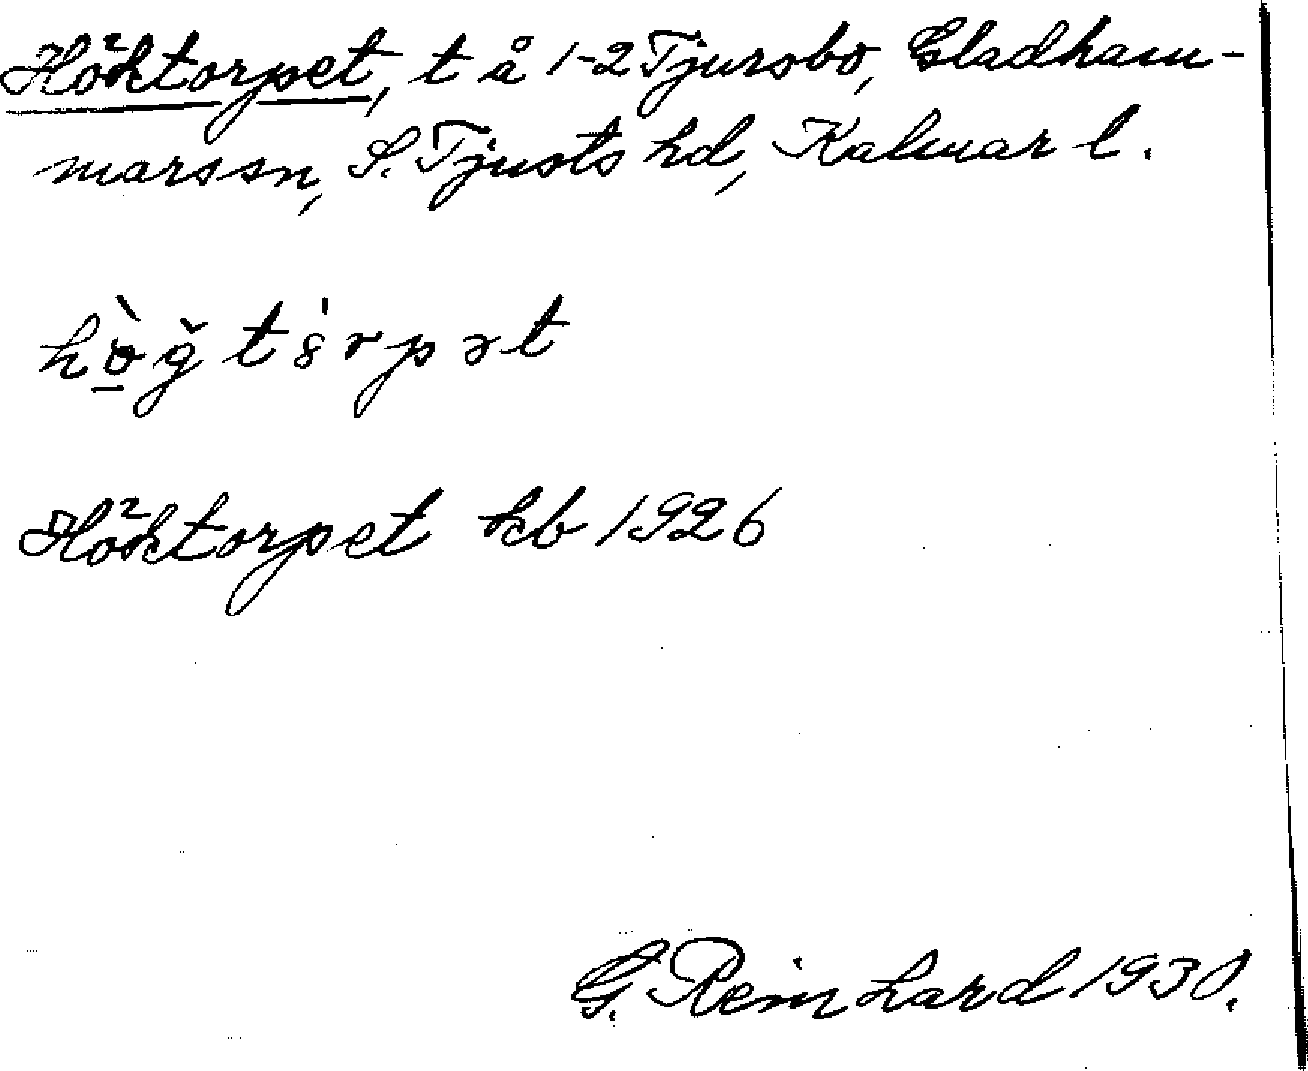 Höktorpet, t å 1-2 Tjursbo, Gladham-
marssn, S. Tjusts hd, Kalmar l.
Höktorpet kb 1926
G. Reinhard 1930.